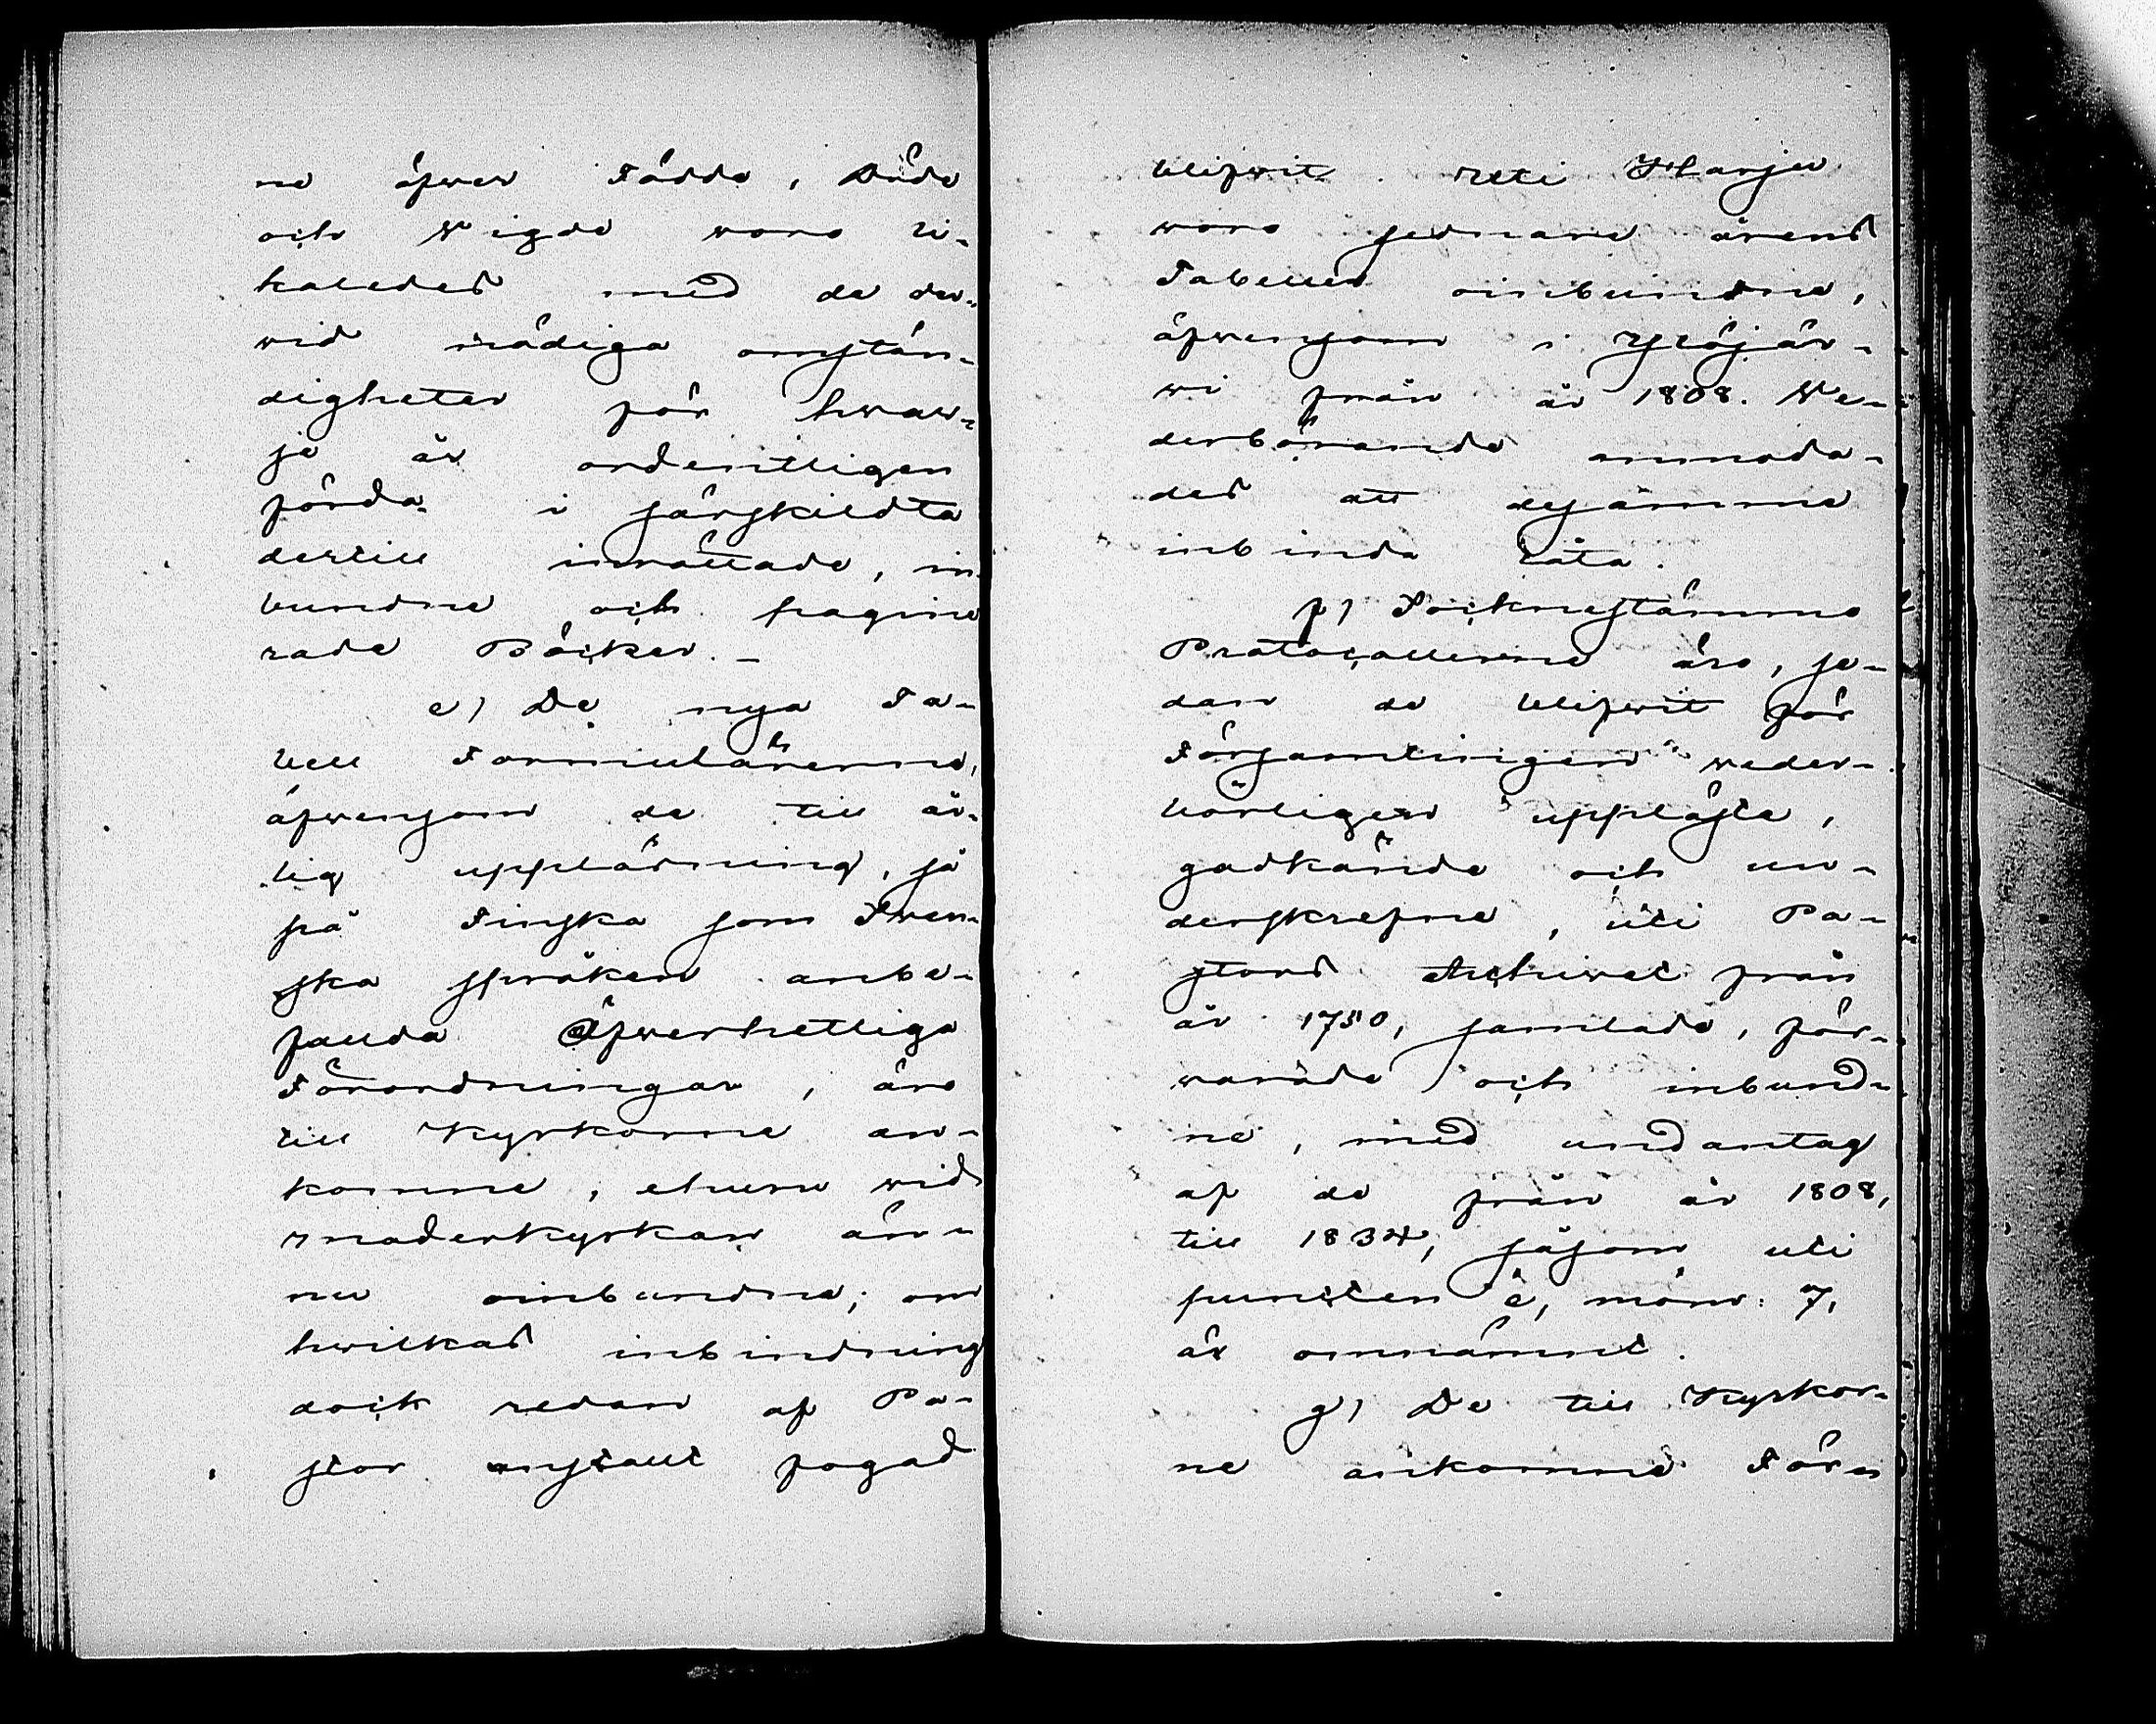 ne öfwer Födde, Döde
och Wigde woro li-
kaledes med de der-
wid nödiga omstän-
digheter för hwar-
je år ordentligen
förda i särskildta
dertill inrättade, in
bundne och pagine
rade Böcker. –
e) De nya Ta-
bell Formulärerne,
äfwensom de till år-
lig uppläsning, så
på Finska som Swen-
ska språken anbe-
fallda Öfwerhetliga
Förordningar, äro
till Kyrkorne an-
komne, ehuru wid
moderkyrkan än-
nu oinbundne; om
hwilkas inbindning
dock redan af Pa-
stor anstalt fogad
blifwit. Uti Harju
woro sednare årens
Tabeller oinbundne,
äfwensom i Ylöjär-
wi från år 1808. We-
derbörande anmoda-
des att desamma
inbinda låta.
f) Socknestämmo
Protocollerne äro, se-
dan de blifwit för
Församlingen weder-
börligen uppläste,
godkände och un-
derskrefne, uti Pa-
stors Archivet från
år 1750, samlade, för-
warade och inbund-
ne, med undantag
af de från år 1808,
till 1834, såsom uti
puncten è, mom: 7,
är omnämnt.
g) De till Kyrkor-
ne ankomne För-